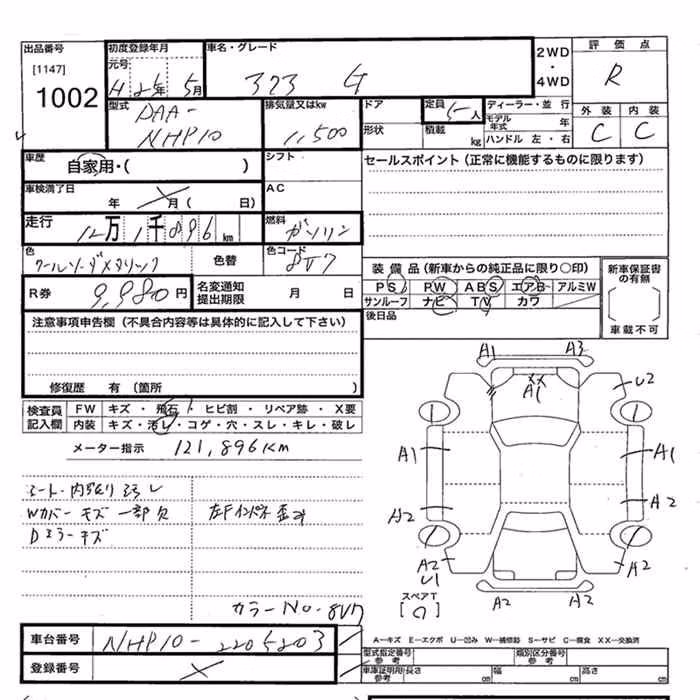 出品番号 初度登録年月 車名・グレード 2WD・4WD 評価点
[1147] 元号 R
1002 H 25年 5月 323 G
型式 DAA-NHP10 排気量又はkw 1,500 ドア 定員 5人 ディーラー・並行 外装 内装
形状 積載 kg モデル年式 年 ハンドル 左・右 C C
車歴 自家用・( ) シフト セールスポイント(正常に機能するものに限ります)
車検満了日 年 月( 日) AC
走行 12万1千896km 燃料 ガソリン
色 クールソーダメタリック 色替 色コード 8V7 装備品(新車からの純正品に限り○印) 新車保証書の有無
R券 9,980円 名変通知提出期限 月 日 PS PW ABS エアB アルミW
サンルーフ ナビ TV カワ
注意事項申告欄(不具合内容等は具体的に記入して下さい) 後日品 車載不可
修復歴 有(箇所 )
検査員記入欄 FW キズ・飛石・ヒビ割・リペア跡・X要
内装 キズ・汚レ・コゲ・穴・スレ・キレ・破レ
メーター指示 121,896KM
シート・内張り汚レ
Wカバーキズ一部欠 左Fインパネ歪み
Dミラーキズ
カラーNo.8V7
A1 A3
XX
A1 U2
A1 A1
A2 A2
A2 A2
U1
A2 A2
スペアT
A-キズ E-エクボ U-凹み W-補修跡 S-サビ C-腐食 XX-交換済
車台番号 NHP10-2205203 型式指定番号 参考 類別区分番号 参考
登録番号 車庫証明用 参考 長さ cm 幅 cm 高さ cm